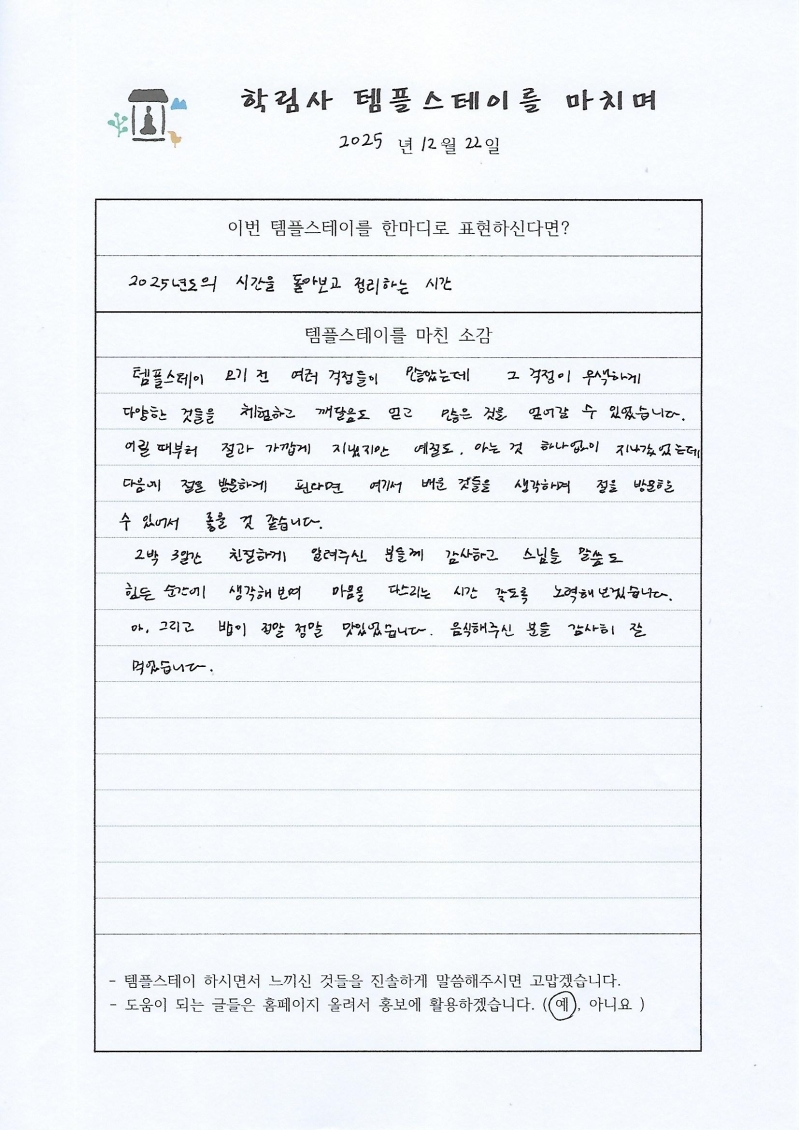 학림사 템플스테이를 마치며
2025 년 12월 22일
이번 템플스테이를 한마디로 표현하신다면?
2025년도의 시간을 돌아보고 정리하는 시간
템플스테이를 마친 소감
템플스테이 오기 전 여러 걱정들이 많았는데 그 걱정이 무색하게
다양한 것들을 체험하고 깨달음도 얻고 많은 것을 얻어갈 수 있었습니다.
어릴 때부터 절과 가깝게 지냈지만 예절도, 아는 것 하나없이 지나갔었는데
다음에 절을 방문하게 된다면 여기서 배운 것들을 생각하며 절을 방문할
수 있어서 좋을 것 같습니다.
2박 3일간 친절하게 알려주신 분들께 감사하고 스님들 말씀도
힘든 순간에 생각해보며 마음을 다스리는 시간 갖도록 노력해보겠습니다.
아, 그리고 밥이 정말 정말 맛있었습니다. 음식해주신 분들 감사히 잘
먹었습니다.
- 템플스테이 하시면서 느끼신 것들을 진솔하게 말씀해주시면 고맙겠습니다.
- 도움이 되는 글들은 홈페이지 올려서 홍보에 활용하겠습니다. (예, 아니요 )